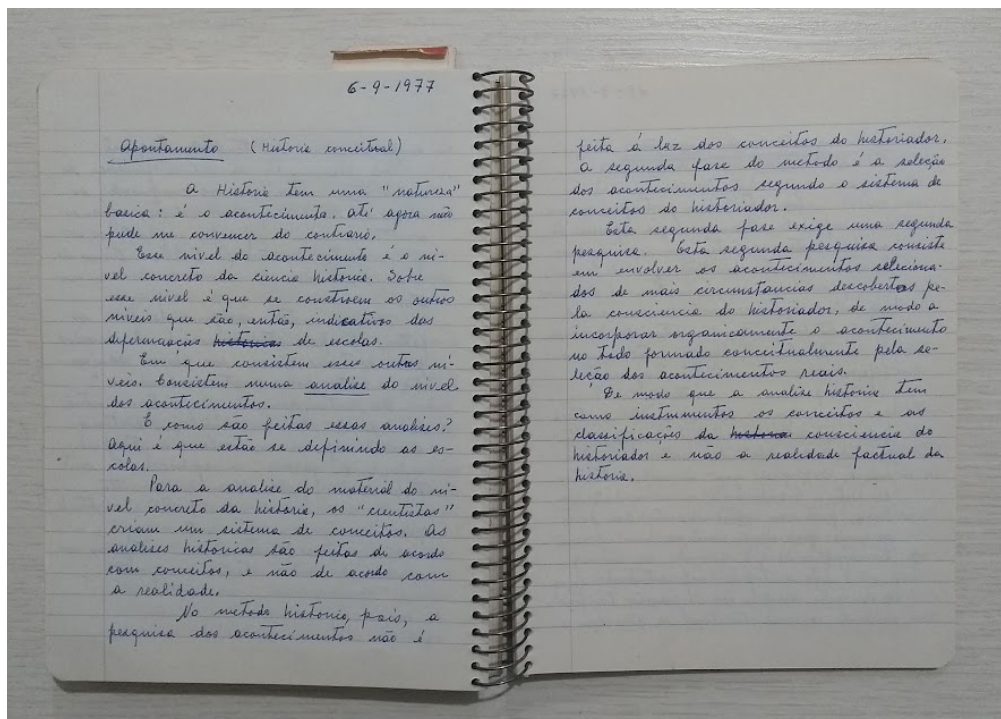 6-9-1977
Apontamento (Historia conceitual)
A Historia tem uma "natureza"
basica: é o acontecimento. Até agora não
pude me convencer do contrario.
Esse nivel do acontecimento é o ni-
vel concreto da ciencia historia. Sobre
esse nivel é que se constroem os outros
niveis que são, então, indicativos das
diferenciações historicas de escolas.
Em que consistem esses outros ni-
veis. Consistem numa analise do nivel
dos acontecimentos.
E como são feitas essas analises?
Aqui é que estão se definindo as es-
colas.
Para a analise do material do ni-
vel concreto da historia, os "cientistas"
criam um sistema de conceitos. As
analises historicas são feitas de acordo
com conceitos, e não de acordo com
a realidade.
No metodo historico, pois, a
pesquisa dos acontecimentos não é
feita á luz dos conceitos do historiador.
A segunda fase do metodo é a seleção
dos acontecimentos segundo o sistema de
conceitos do historiador.
Esta segunda fase exige uma segunda
pesquisa. Esta segunda pesquisa consiste
em envolver os acontecimentos seleciona-
dos de mais circunstancias descobertas pe-
la consciencia do historiador, de modo a
incorporar organicamente o acontecimento
no todo formado conceitualmente pela se-
leção dos acontecimentos reais.
De modo que a analise historica tem
como instrumentos os conceitos e as
classificações da consciencia do
historiador e não a realidade factual da
historia.